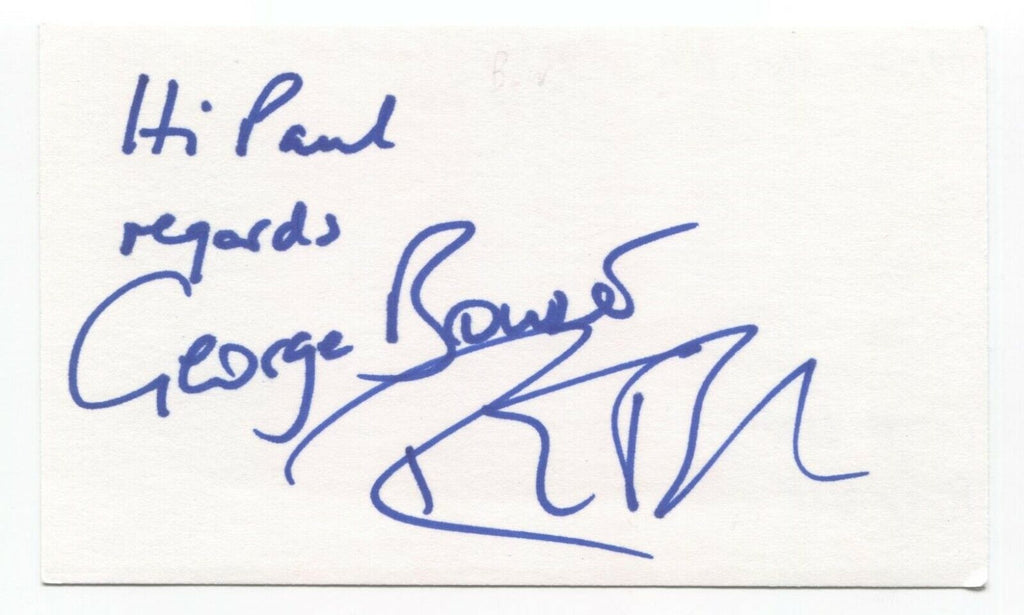 Hi Paul
regards
George Bowser